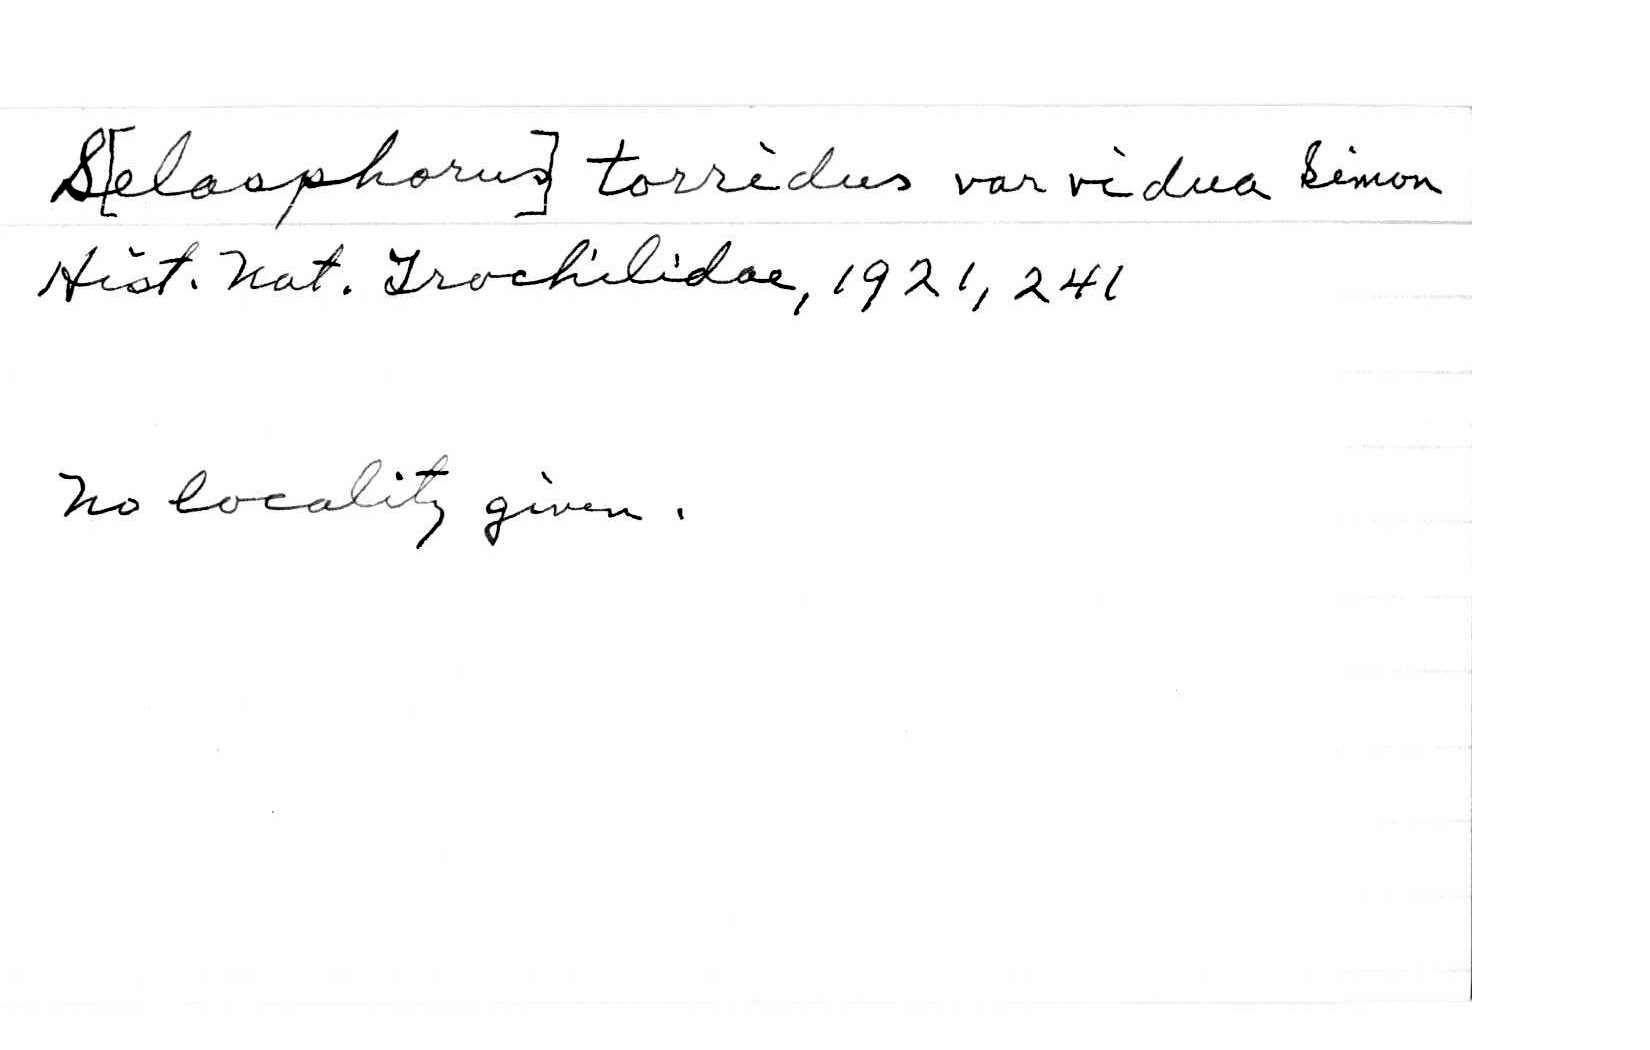 S[elasphorus] torridus var vidua Simon
Hist. Nat. Trochilidae, 1921, 241
No locality given.